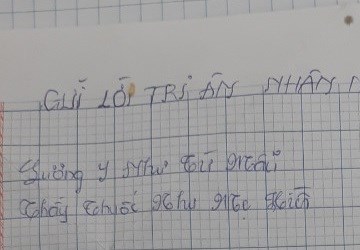 GỬI LỜI TRI ÂN NHÂN
Lương y như từ mẫu
Thầy thuốc như mẹ hiền